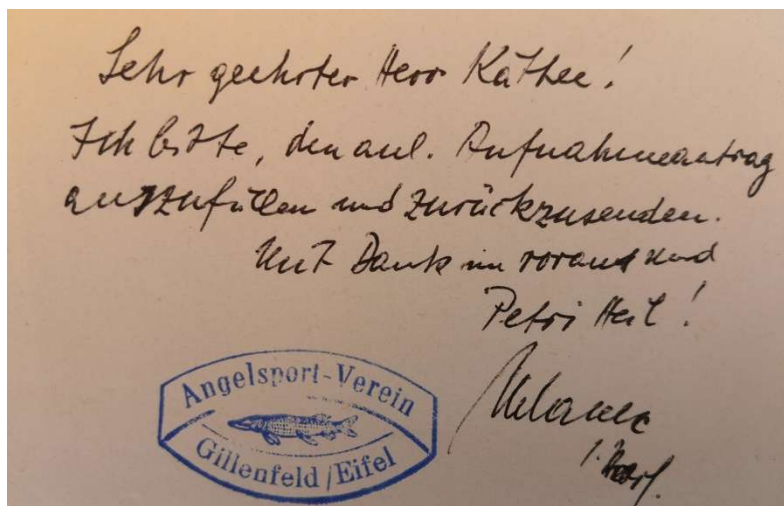 Sehr geehrter Herr Käthee!
Ich bitte, den anl. Aufnahmeantrag
auszufüllen und zurückzusenden.
Mit Dank im voraus und
Petri Heil!
1. Vors.
Angelsport-Verein
Gillenfeld/Eifel